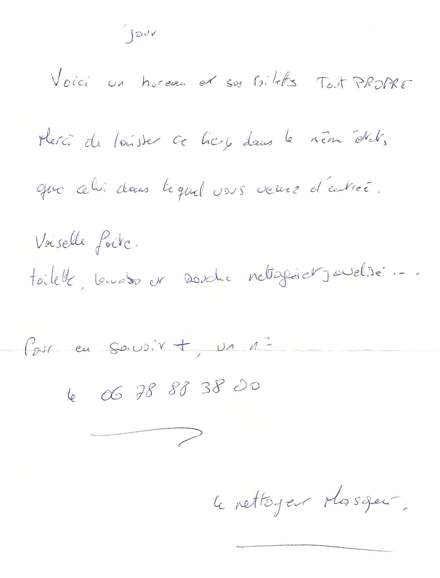 jour
Voici un bureau et ses toilettes Tout PROPRE
Merci de laisser ce lieu dans le même état,
que celui dans lequel vous venez d'entrer.
Vaiselle faite.
toilette, lavabo et douche nettoyé et javelisé ...
Pour en savoir +, un n°
le 06 78 88 38 00
Le nettoyeur Masqué.